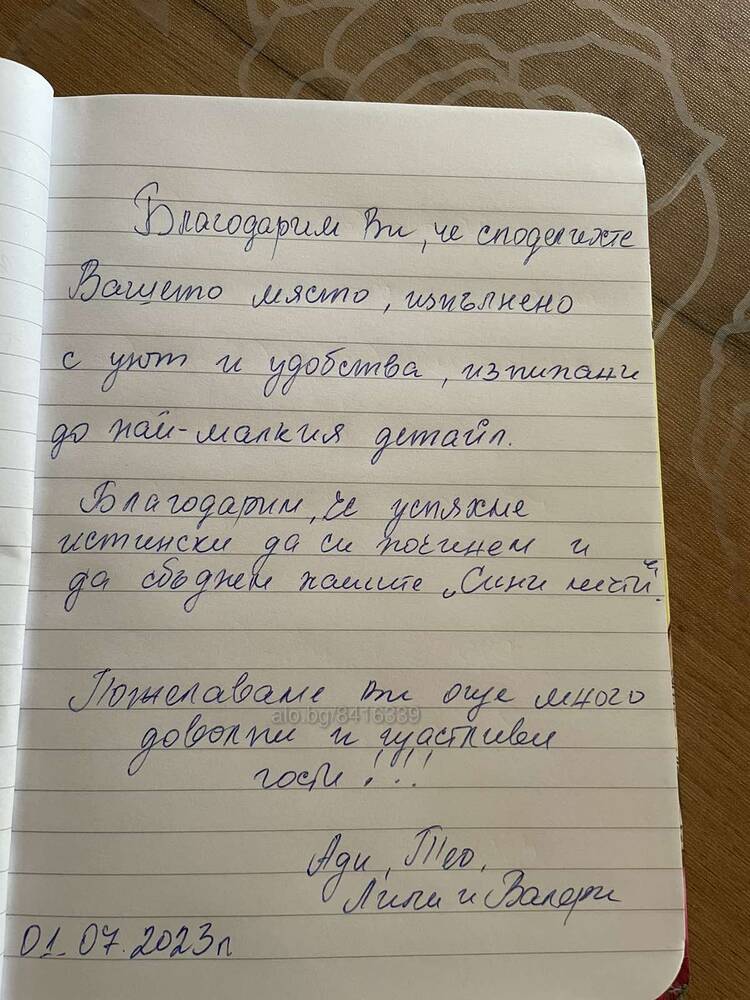 Благодарим Ви, че споделихте
Вашето място, изпълнено
с уют и удобства, изпипани
до най-малкия детайл.
Благодарим, че успяхме
истински да си починем и
да сбъднем нашите „Сини мечти“.
Пожелаваме Ви още много
alo.bg/8416339
доволни и щастливи
гости!!!
Ади, Тео,
Лили и Валери
01.07.2023г